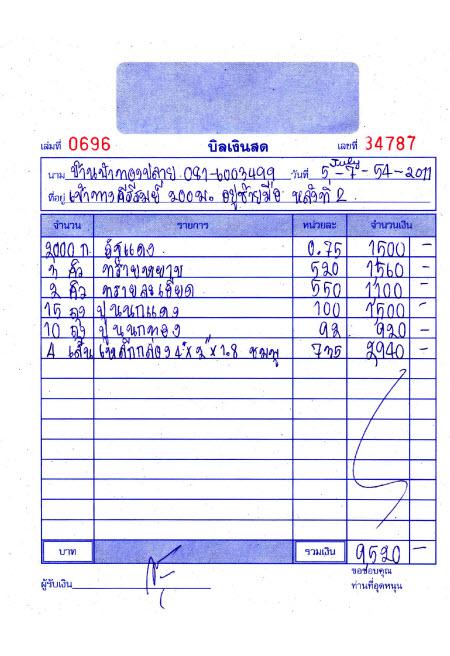 เล่มที่ 0696 บิลเงินสด เลขที่ 34787
นาม บ้านป้าทองปลาย 081-6003499 วันที่ 5-7-54-2011
July
ที่อยู่ เข้าทางคีรีรมย์ 200ม. อยู่ซ้ายมือ หลังที่ 2
จำนวน รายการ หน่วยละ จำนวนเงิน
2000 ก. อิฐแดง 0.75 1500 -
3 คิว ทรายหยาบ 520 1560 -
2 คิว ทรายละเอียด 550 1100 -
15 ลูก ปูนนกแดง 100 1500 -
10 ลูก ปูนนกทอง 92 920 -
4 เส้น เหล็กกล่อง 4"x2"x1.8 ชมพู 735 2940 -
บาท รวมเงิน 9520 -
ขอขอบคุณ
ผู้รับเงิน ท่านที่อุดหนุน